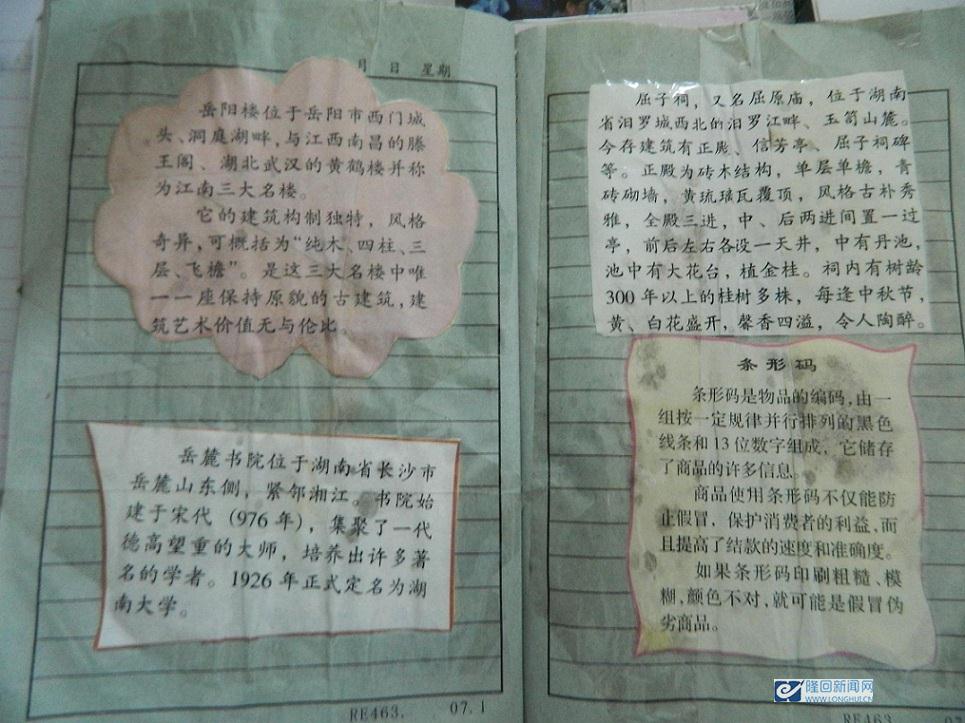 月 日 星期
岳阳楼位于岳阳市西门城
头、洞庭湖畔,与江西南昌的滕
王阁、湖北武汉的黄鹤楼并称
为江南三大名楼。
它的建筑构制独特，风格
奇异,可概括为“纯木、四柱、三
层、飞檐”。是这三大名楼中唯
一一座保持原貌的古建筑,建
筑艺术价值无与伦比。
岳麓书院位于湖南省长沙市
岳麓山东侧，紧邻湘江。书院始
建于宋代（976 年），集聚了一代
德高望重的大师，培养出许多著
名的学者。1926 年正式定名为湖
南大学。
RE463.
07.1
屈子祠，又名屈原庙，位于湖南
省汨罗城西北的汨罗江畔、玉笥山麓。
今存建筑有正殿、信芳亭、屈子祠碑
等。正殿为砖木结构，单层单檐，青
砖砌墙，黄琉璃瓦覆顶，风格古朴秀
雅，全殿三进，中、后两进间置一过
亭，前后左右各设一天井，中有丹池，
池中有大花台，植金桂。祠内有树龄
300 年以上的桂树多株，每逢中秋节，
黄、白花盛开，馨香四溢，令人陶醉。
条形码
条形码是物品的编码,由一
组按一定规律并行排列的黑色
线条和 13 位数字组成，它储存
了商品的许多信息。
商品使用条形码不仅能防
止假冒，保护消费者的利益,而
且提高了结款的速度和准确度。
如果条形码印刷粗糙、模
糊,颜色不对,就可能是假冒伪
劣商品。
隆回新闻网
WWW.LONGHUI.CN
RE463.
07